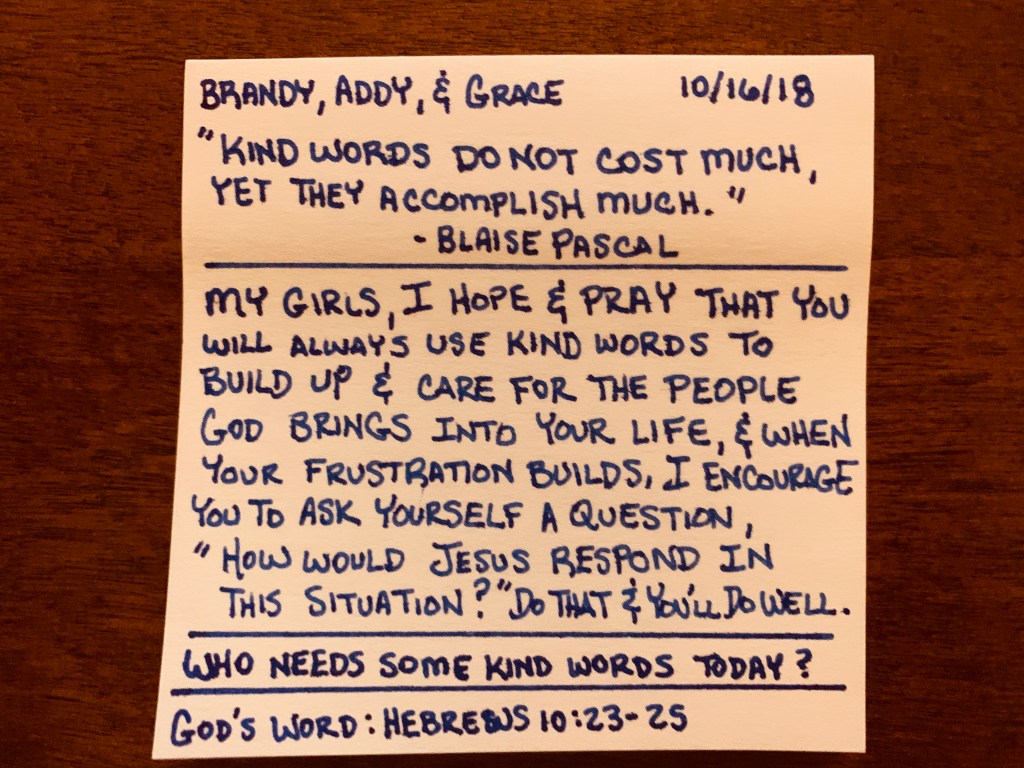 BRANDY, ADDY, & GRACE 10/16/18
"KIND WORDS DO NOT COST MUCH,
YET THEY ACCOMPLISH MUCH."
- BLAISE PASCAL
MY GIRLS, I HOPE & PRAY THAT YOU
WILL ALWAYS USE KIND WORDS TO
BUILD UP & CARE FOR THE PEOPLE
GOD BRINGS INTO YOUR LIFE, & WHEN
YOUR FRUSTRATION BUILDS, I ENCOURAGE
YOU TO ASK YOURSELF A QUESTION,
"HOW WOULD JESUS RESPOND IN
THIS SITUATION?" DO THAT & YOU'LL DO WELL.
WHO NEEDS SOME KIND WORDS TODAY?
GOD'S WORD: HEBREWS 10:23-25